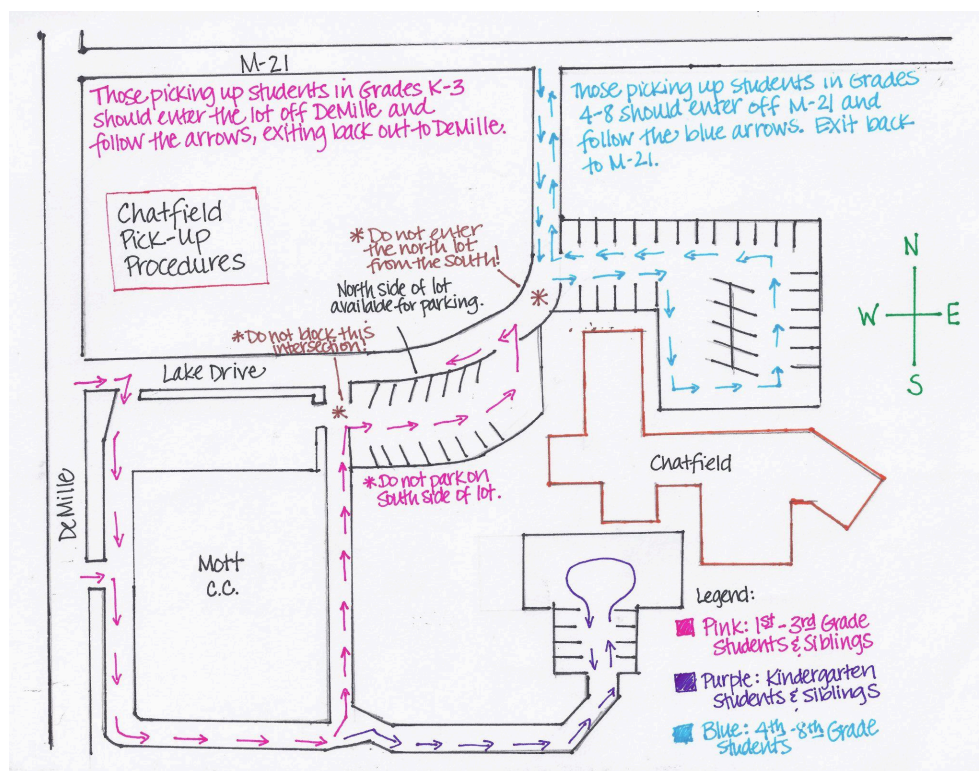 M-21
Those picking up students in Grades K-3
should enter the lot off DeMille and
follow the arrows, exiting back out to DeMille.
Those picking up students in Grades
4-8 should enter off M-21 and
follow the blue arrows. Exit back
to M-21.
Chatfield
Pick-Up
Procedures
* Do not enter
the north lot
from the south!
North side of lot
available for parking.
*
* Do not block this
intersection!
N
W
E
S
Lake Drive
*
DeMille
Chatfield
* Do not park on
south side of lot.
Mott
C.C.
Legend:
Pink: 1st-3rd Grade
Students & Siblings
Purple: Kindergarten
Students & Siblings
Blue: 4th-8th Grade
Students